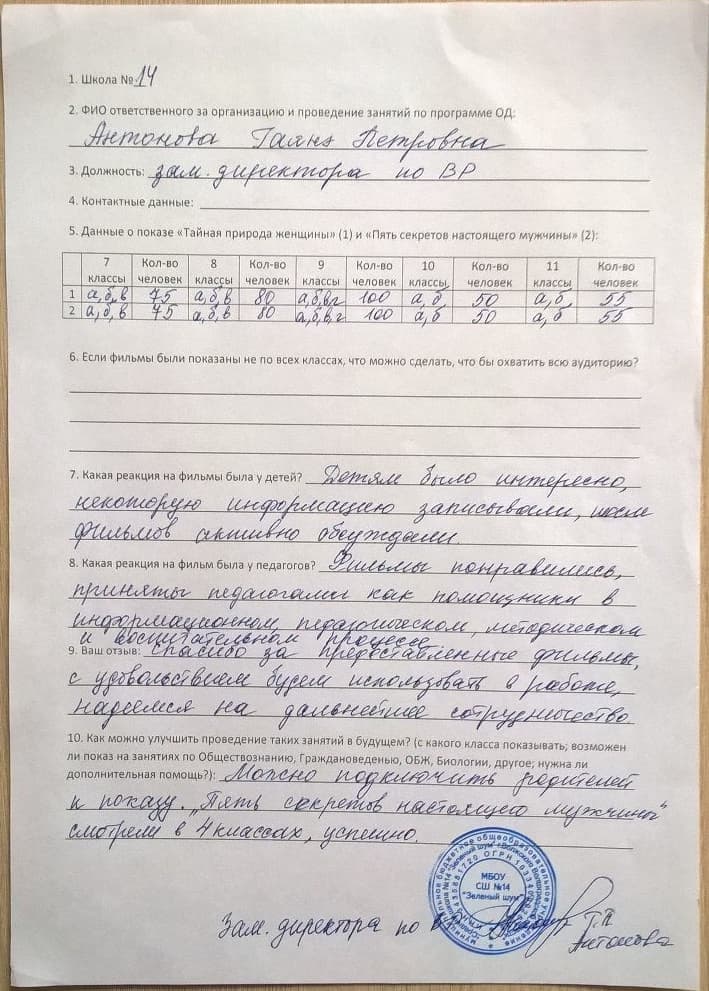 1. Школа № 14
2. ФИО ответственного за организацию и проведение занятий по программе ОД:
Антонова Гаянэ Петровна
3. Должность: зам. директора по ВР
4. Контактные данные:
5. Данные о показе «Тайная природа женщины» (1) и «Пять секретов настоящего мужчины» (2):
7 классы Кол-во человек 8 классы Кол-во человек 9 классы Кол-во человек 10 классы Кол-во человек 11 классы Кол-во человек
1 а,б,в 75 а,б,в 80 а,б,в,г 100 а,б, 50 а,б, 55
2 а,б,в 75 а,б,в 80 а,б,в,г 100 а,б 50 а,б 55
6. Если фильмы были показаны не по всех классах, что можно сделать, что бы охватить всю аудиторию?
7. Какая реакция на фильмы была у детей? Детям было интересно,
некоторую информацию записывали, после
фильмов активно обсуждали.
8. Какая реакция на фильм была у педагогов? Фильмы понравились,
приняты педагогами как помощники в
информационном, педагогическом, методическом
и воспитательном процессе
9. Ваш отзыв: спасибо за предоставленные фильмы,
с удовольствием будем использовать в работе,
надеемся на дальнейшее сотрудничество.
10. Как можно улучшить проведение таких занятий в будущем? (с какого класса показывать; возможен
ли показ на занятиях по Обществознанию, Граждановеденью, ОБЖ, Биологии, другое; нужна ли
дополнительная помощь?): Можно подключить родителей
к показу. „Пять секретов настоящего мужчины"
смотрели в 4 классах, успешно.
МБОУ
СШ №14
"Зеленый шум"
Зам. директора по ВР Г.П.
Антонова